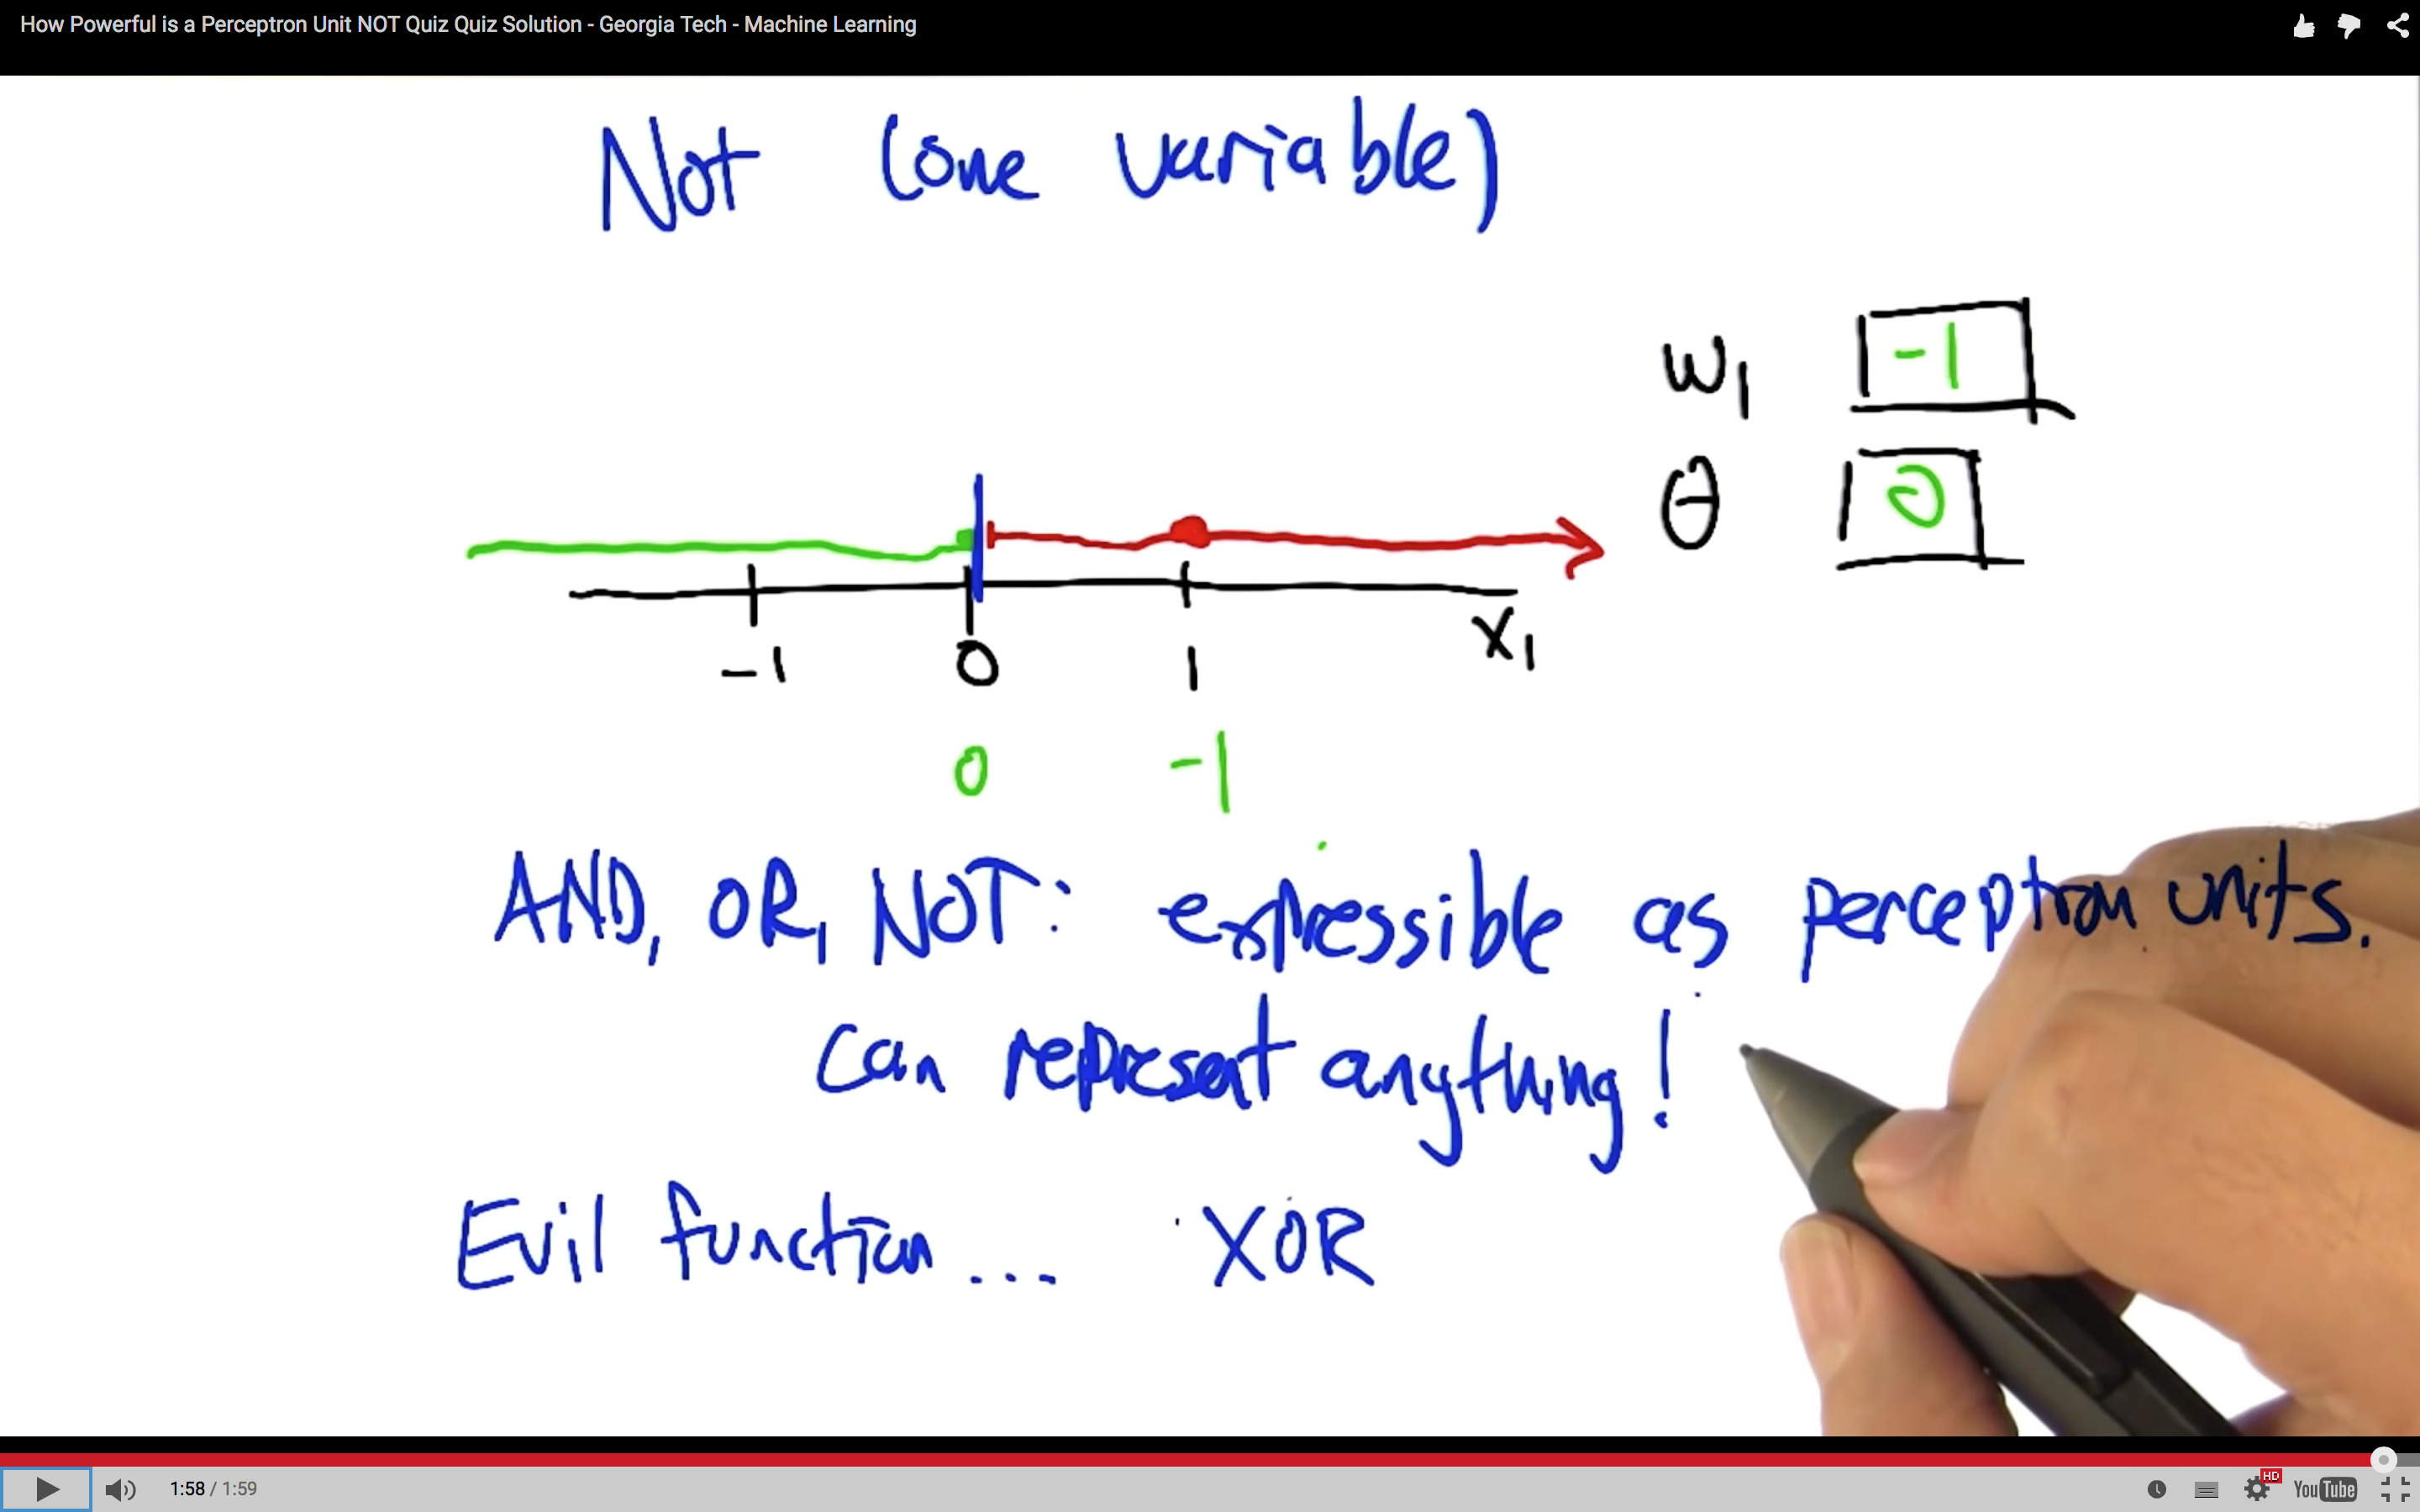 How Powerful is a Perceptron Unit NOT Quiz Quiz Solution - Georgia Tech - Machine Learning
Not (one variable)
w1 -1
θ 0
-1 0 1 x1
0 -1
AND, OR, NOT: expressible as perceptron units.
can represent anything!
Evil function... XOR
1:58 / 1:59
HD
YouTube